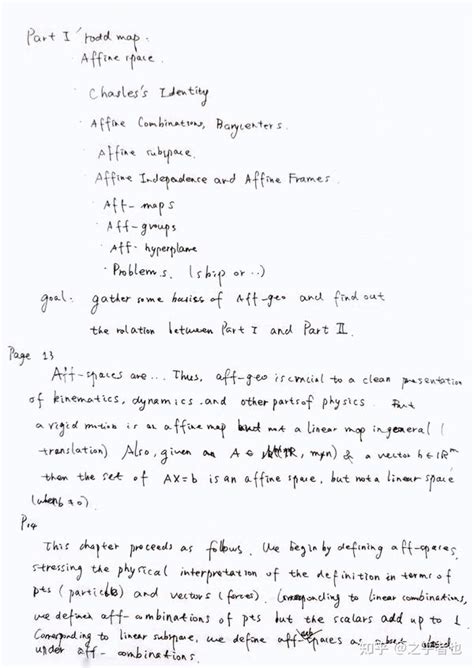 Part I road map.
· Affine space.
· Chasles's Identity
· Affine Combinations, Barycenters.
· Affine subspace.
· Affine Independence and Affine Frames.
· Aff-maps
· Aff-groups
· Aff-hyperplane
· Problems. (skip or ..)
goal: gather some basics of Aff-geo and find out
the rolation between Part I and Part II.
Page 13
Aff-spaces are... Thus, aff-geo is crucial to a clean presentation
of kinematics, dynamics, and other parts of physics.
a rigid motion is an affine map but not a linear map in general (
translation) Also, given an m×n) & a vector b∈ℝᵐ
then the set of AX=b is an affine space, but not a linear space
(when b≠0).
P14
This chapter proceeds as follows. We begin by defining aff-spaces,
stressing the physical interpretation of the definition in terms of
pts (particles) and vectors (forces). Corresponding to linear combinations,
we defined aff-combinations of pts but the scalars add up to 1.
Corresponding to linear subspace, we define aff-subspaces as subset closed
under aff-combinations.
知乎